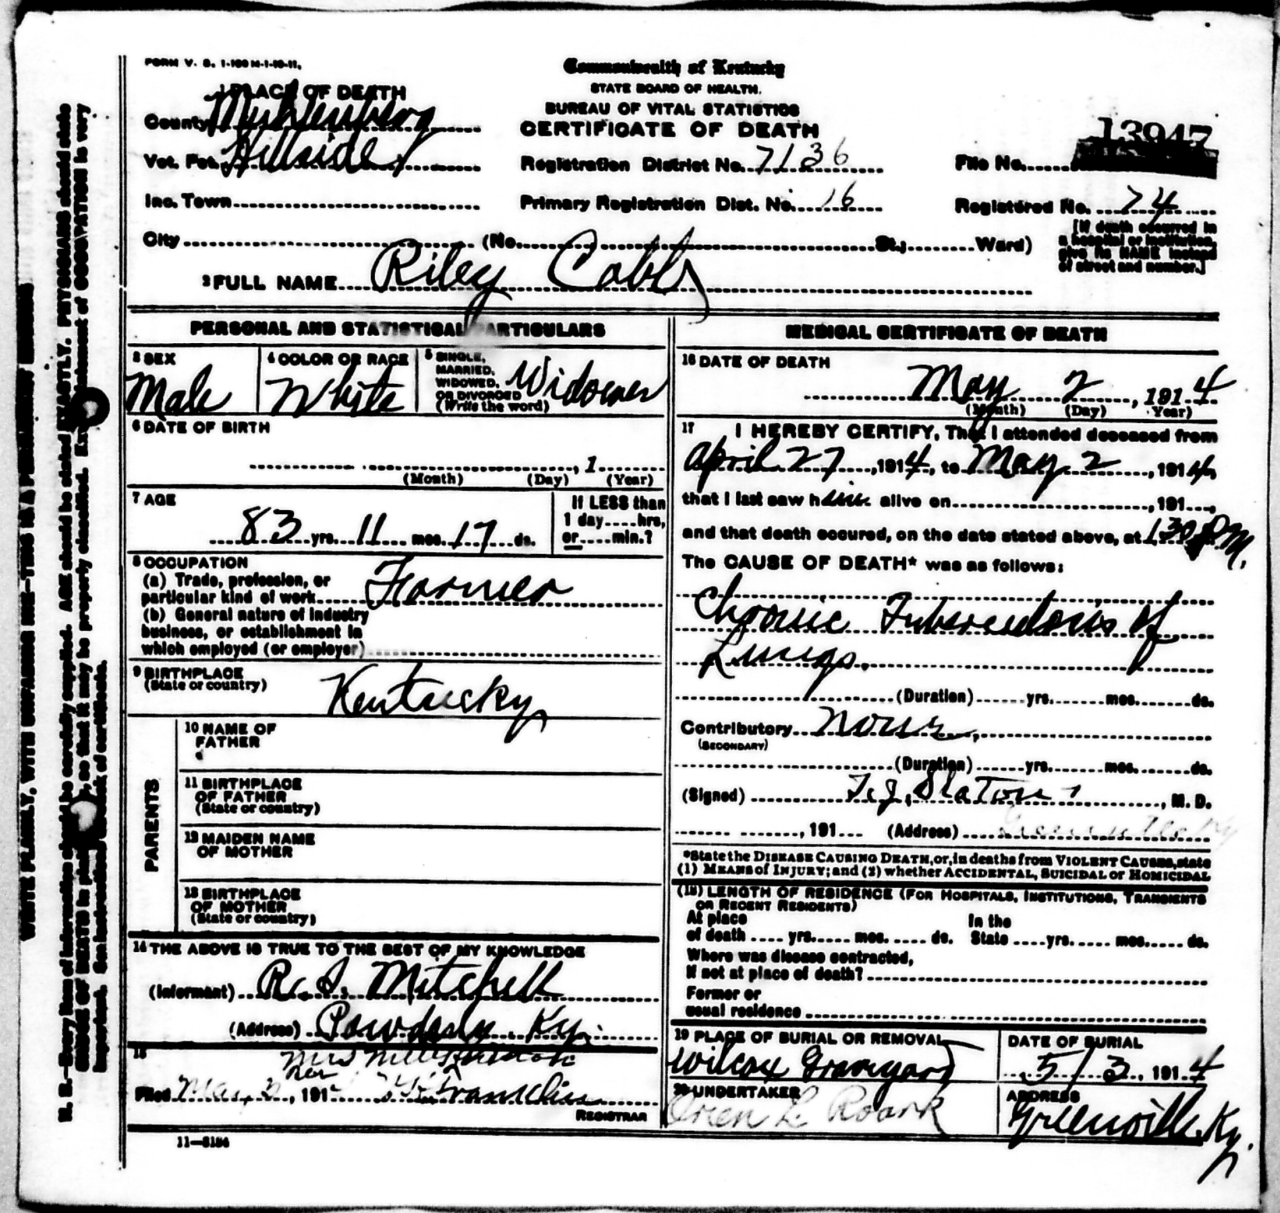 FORM V. S. 1-100 M-1-10-11.
Commonwealth of Kentucky
STATE BOARD OF HEALTH.
BUREAU OF VITAL STATISTICS
CERTIFICATE OF DEATH
1 PLACE OF DEATH
County Muhlenberg
Vot. Pct. Hillside
Inc. Town
City (No. St.; Ward)
Registration District No. 7136
Primary Registration Dist. No. 16
13947
File No.
Registered No. 74
[If death occurred in
a hospital or institution,
give its NAME instead
of street and number.]
2 FULL NAME Riley Cobb
PERSONAL AND STATISTICAL PARTICULARS
3 SEX
Male
4 COLOR OR RACE
White
5 SINGLE,
MARRIED,
WIDOWED,
OR DIVORCED
(Write the word)
Widower
6 DATE OF BIRTH
, 1
(Month) (Day) (Year)
7 AGE
83 yrs. 11 mos. 17 ds.
If LESS than
1 day....hrs.
or....min.?
8 OCCUPATION
(a) Trade, profession, or
particular kind of work Farmer
(b) General nature of industry
business, or establishment in
which employed (or employer)
9 BIRTHPLACE
(State or country)
Kentucky
PARENTS
10 NAME OF
FATHER
11 BIRTHPLACE
OF FATHER
(State or country)
12 MAIDEN NAME
OF MOTHER
13 BIRTHPLACE
OF MOTHER
(State or country)
14 THE ABOVE IS TRUE TO THE BEST OF MY KNOWLEDGE
(Informant) R. S. Mitchell
(Address) Powderly Ky.
15
Filed May , 191 Franklin
REGISTRAR
11—5184
MEDICAL CERTIFICATE OF DEATH
16 DATE OF DEATH
May 2, 1914
(Month) (Day) (Year)
17 I HEREBY CERTIFY, That I attended deceased from
April 27, 1914, to May 2, 1914,
that I last saw him alive on , 191
and that death occured, on the date stated above, at 130 P M.
The CAUSE OF DEATH* was as follows:
Chronic Tuberculosis of
Lungs.
(Duration) yrs. mos. ds.
Contributory None
(SECONDARY)
(Duration) yrs. mos. ds.
(Signed) T. J. Slaton, M. D.
, 191 (Address) Greenville Ky
*State the DISEASE CAUSING DEATH, or, in deaths from VIOLENT CAUSES, state
(1) MEANS of INJURY; and (2) whether ACCIDENTAL, SUICIDAL or HOMICIDAL
(18) LENGTH OF RESIDENCE (FOR HOSPITALS, INSTITUTIONS, TRANSIENTS
OR RECENT RESIDENTS)
At place In the
of death yrs. mos. ds. State yrs. mos. ds.
Where was disease contracted,
If not at place of death?
Former or
usual residence
19 PLACE OF BURIAL OR REMOVAL
Wilcox Graveyard
DATE OF BURIAL
5/3, 1914
20 UNDERTAKER
Orien L Roark
ADDRESS
Greenville Ky.
WRITE PLAINLY, WITH UNFADING INK—THIS IS A PERMANENT
N. B.—Every item of information should be carefully supplied. AGE should be stated EXACTLY. PHYSICIANS should state
CAUSE OF DEATH in plain , so that it may be properly classified. Exact statement of OCCUPATION is very
important. See instructions on back of certificate.